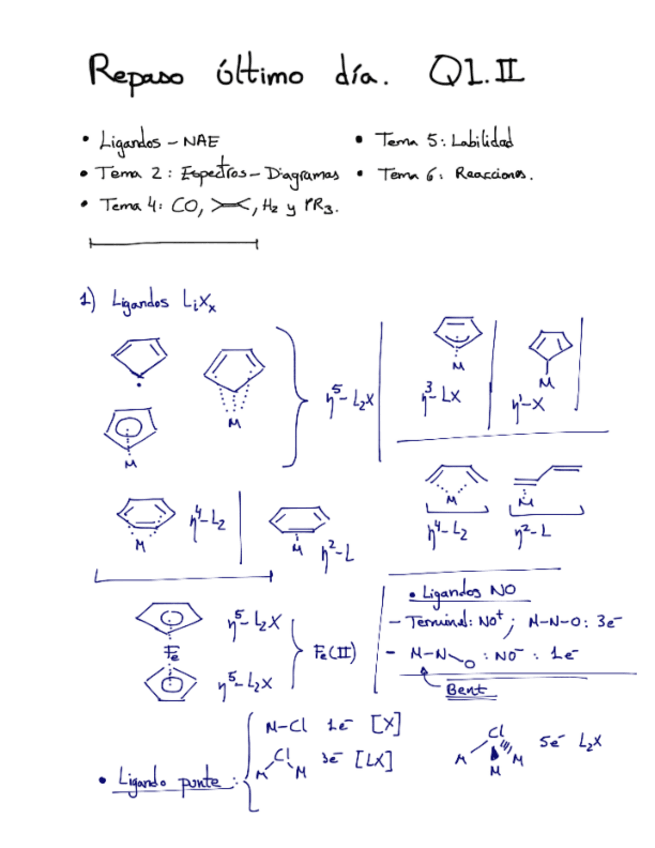 Repaso último día. Q1.II
• Ligandos – NAE
• Tema 2: Espectros – Diagramas
• Tema 4: CO, , H2 y PR3.
• Tema 5: Labilidad
• Tema 6: Reacciones.
1) Ligandos LiXx
M
M
η5- L2X
M
η3- LX
M
η1- X
M
η4- L2
M
η2- L
M
η4- L2
M
η2- L
Fe
η5- L2X
η5- L2X
Fe(II)
• Ligandos NO
- Terminal: NO+ ; M-N-O: 3e-
- M-N O : NO- : 1e-
Bent
• Ligando punte :
M-Cl 1e- [X]
M Cl M 3e- [LX]
M Cl M M 5e- L2X